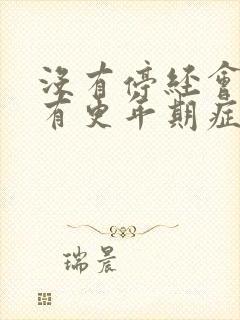 沒有停經會
有更年期症
瑞晨